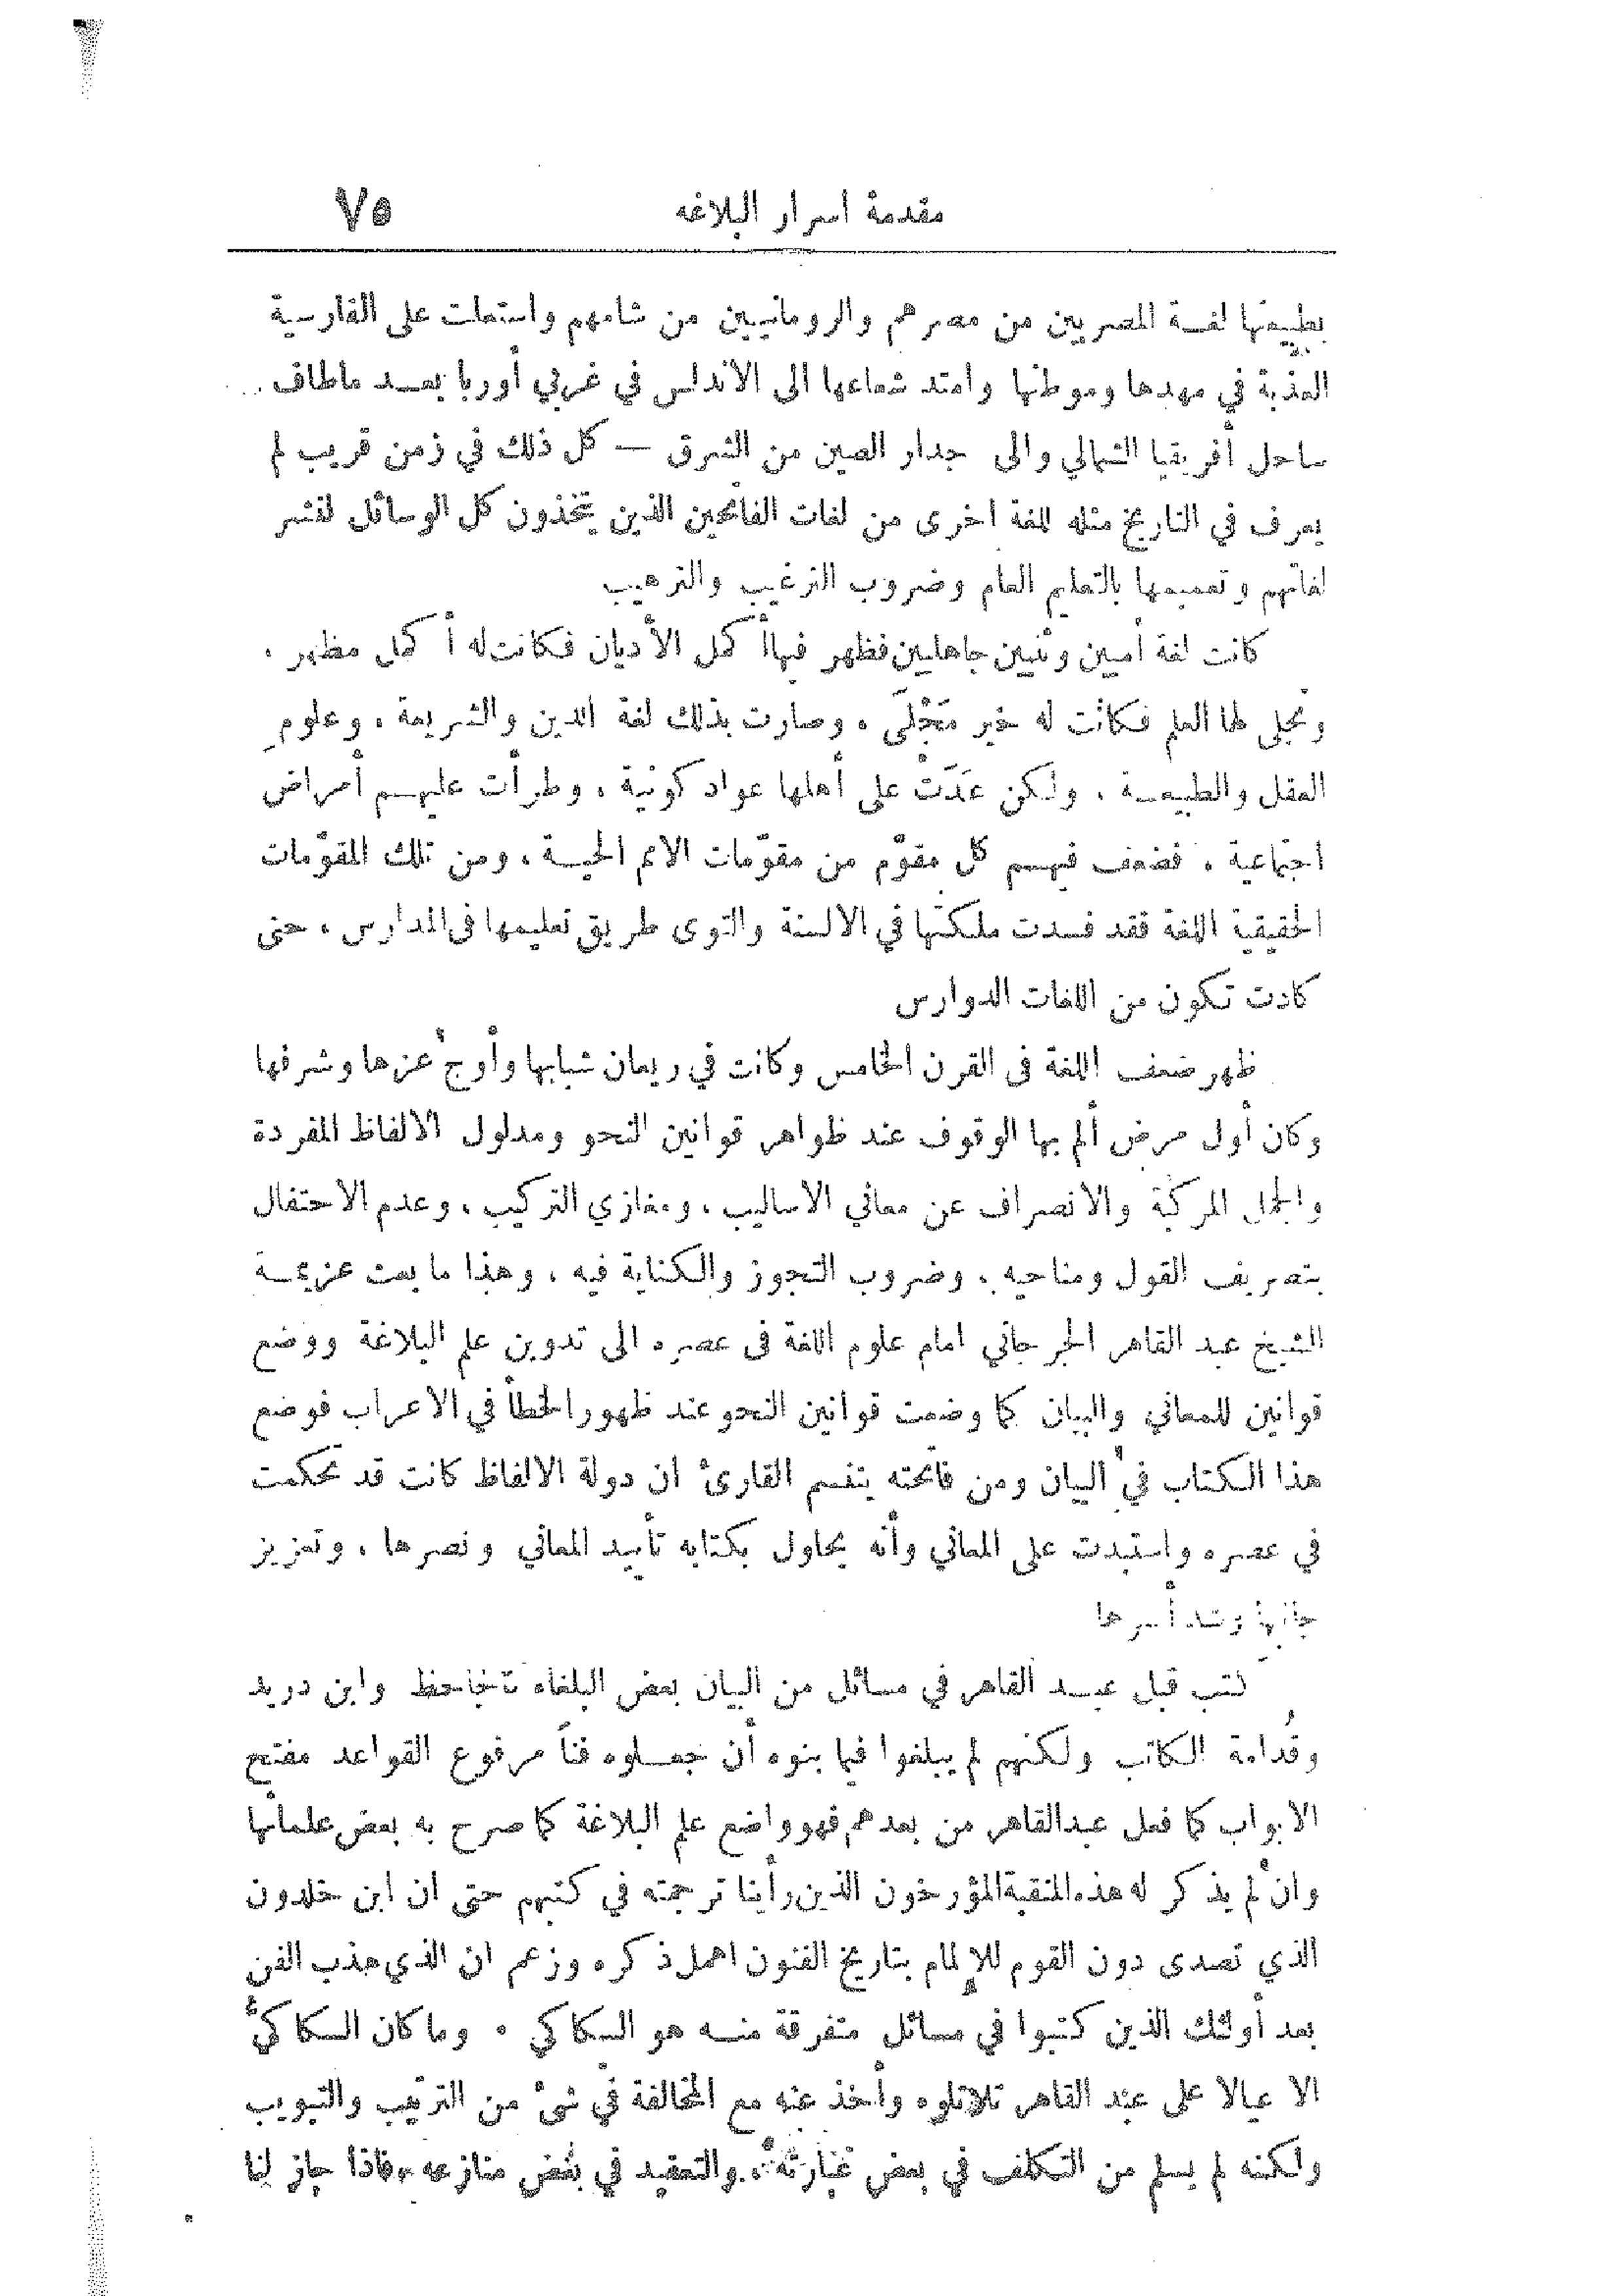 مقدمة اسرار البلاغه ٧٥
بطبيعتها لغة المصريين من مصرهم والرومانيين من شامهم واستعلت على الفارسية
العذبة في مهدها وموطنها وامتد شعاعها الى الاندلس في غربي أوربا بعد ماطاف
ساحل أفريقيا الشمالي والى جدار الصين من الشرق — كل ذلك في زمن قريب لم
يعرف في التاريخ مثله للغة اخرى من لغات الفاتحين الذين يتخذون كل الوسائل لنشر
لغاتهم وتعميمها بالتعليم العام وضروب الترغيب والترهيب
كانت لغة أميين وثنيين جاهليين فظهر فيها أكمل الأديان فكانت له أكمل مظهر .
وتجلى لها العلم فكانت له خير مَجْلَى . وصارت بذلك لغة الدين والشريعة ، وعلوم
العقل والطبيعة . ولكن عَدَتْ على أهلها عواد كونية ، وطرأت عليهم أمراض
اجتماعية . فضعف فيهم كل مقوّم من مقوّمات الامم الحية ، ومن تلك المقوّمات
الحقيقية اللغة فقد فسدت ملكتها في الالسنة والتوى طريق تعليمها فى المدارس ، حتى
كادت تكون من اللغات الدوارس
ظهر ضعف اللغة فى القرن الخامس وكانت في ريعان شبابها وأوج عزها وشرفها
وكان أول مرض ألم بها الوقوف عند ظواهر قوانين النحو ومدلول الالفاظ المفردة
والجمل المركبة والانصراف عن معاني الاساليب ، ومغازي التركيب ، وعدم الاحتفال
بتصريف القول ومناحيه ، وضروب التجوز والكناية فيه ، وهذا ما بعث عزيمة
الشيخ عبد القاهر الجرجاني امام علوم اللغة فى عصره الى تدوين علم البلاغة ووضع
قوانين للمعاني والبيان كما وضعت قوانين النحو عند ظهور الخطأ في الاعراب فوضع
هذا الكتاب في البيان ومن فاتحته يتنسم القارئ ان دولة الالفاظ كانت قد تحكمت
في عصره واستبدت على المعاني وأنه يحاول بكتابه تأييد المعاني ونصرها ، وتعزيز
جانبها وشد أسرها
كتب قبل عبد القاهر في مسائل من البيان بعض البلغاء كالجاحظ وابن دريد
وقُدامة الكاتب ولكنهم لم يبلغوا فيما بنوه أن جعلوه فناً مرفوع القواعد مفتح
الابواب كما فعل عبد القاهر من بعدهم فهو واضع علم البلاغة كما صرح به بعض علمائها
وان لم يذكر له هذه المنقبة المؤرخون الذين رأينا ترجمته في كتبهم حتى ان ابن خلدون
الذي تصدى دون القوم للإلمام بتاريخ الفنون اهمل ذكره وزعم ان الذي هذب الفن
بعد أولئك الذين كتبوا في مسائل متفرقة منه هو السكاكي . وما كان السكاكيُّ
الا عيالا على عبد القاهر تلا تلوه وأخذ عنه مع المخالفة في شئ من الترتيب والتبويب
ولكنه لم يسلم من التكلف في بعض عبارته ، والتعقيد في بعض منازعه ، فاذا جاز لنا